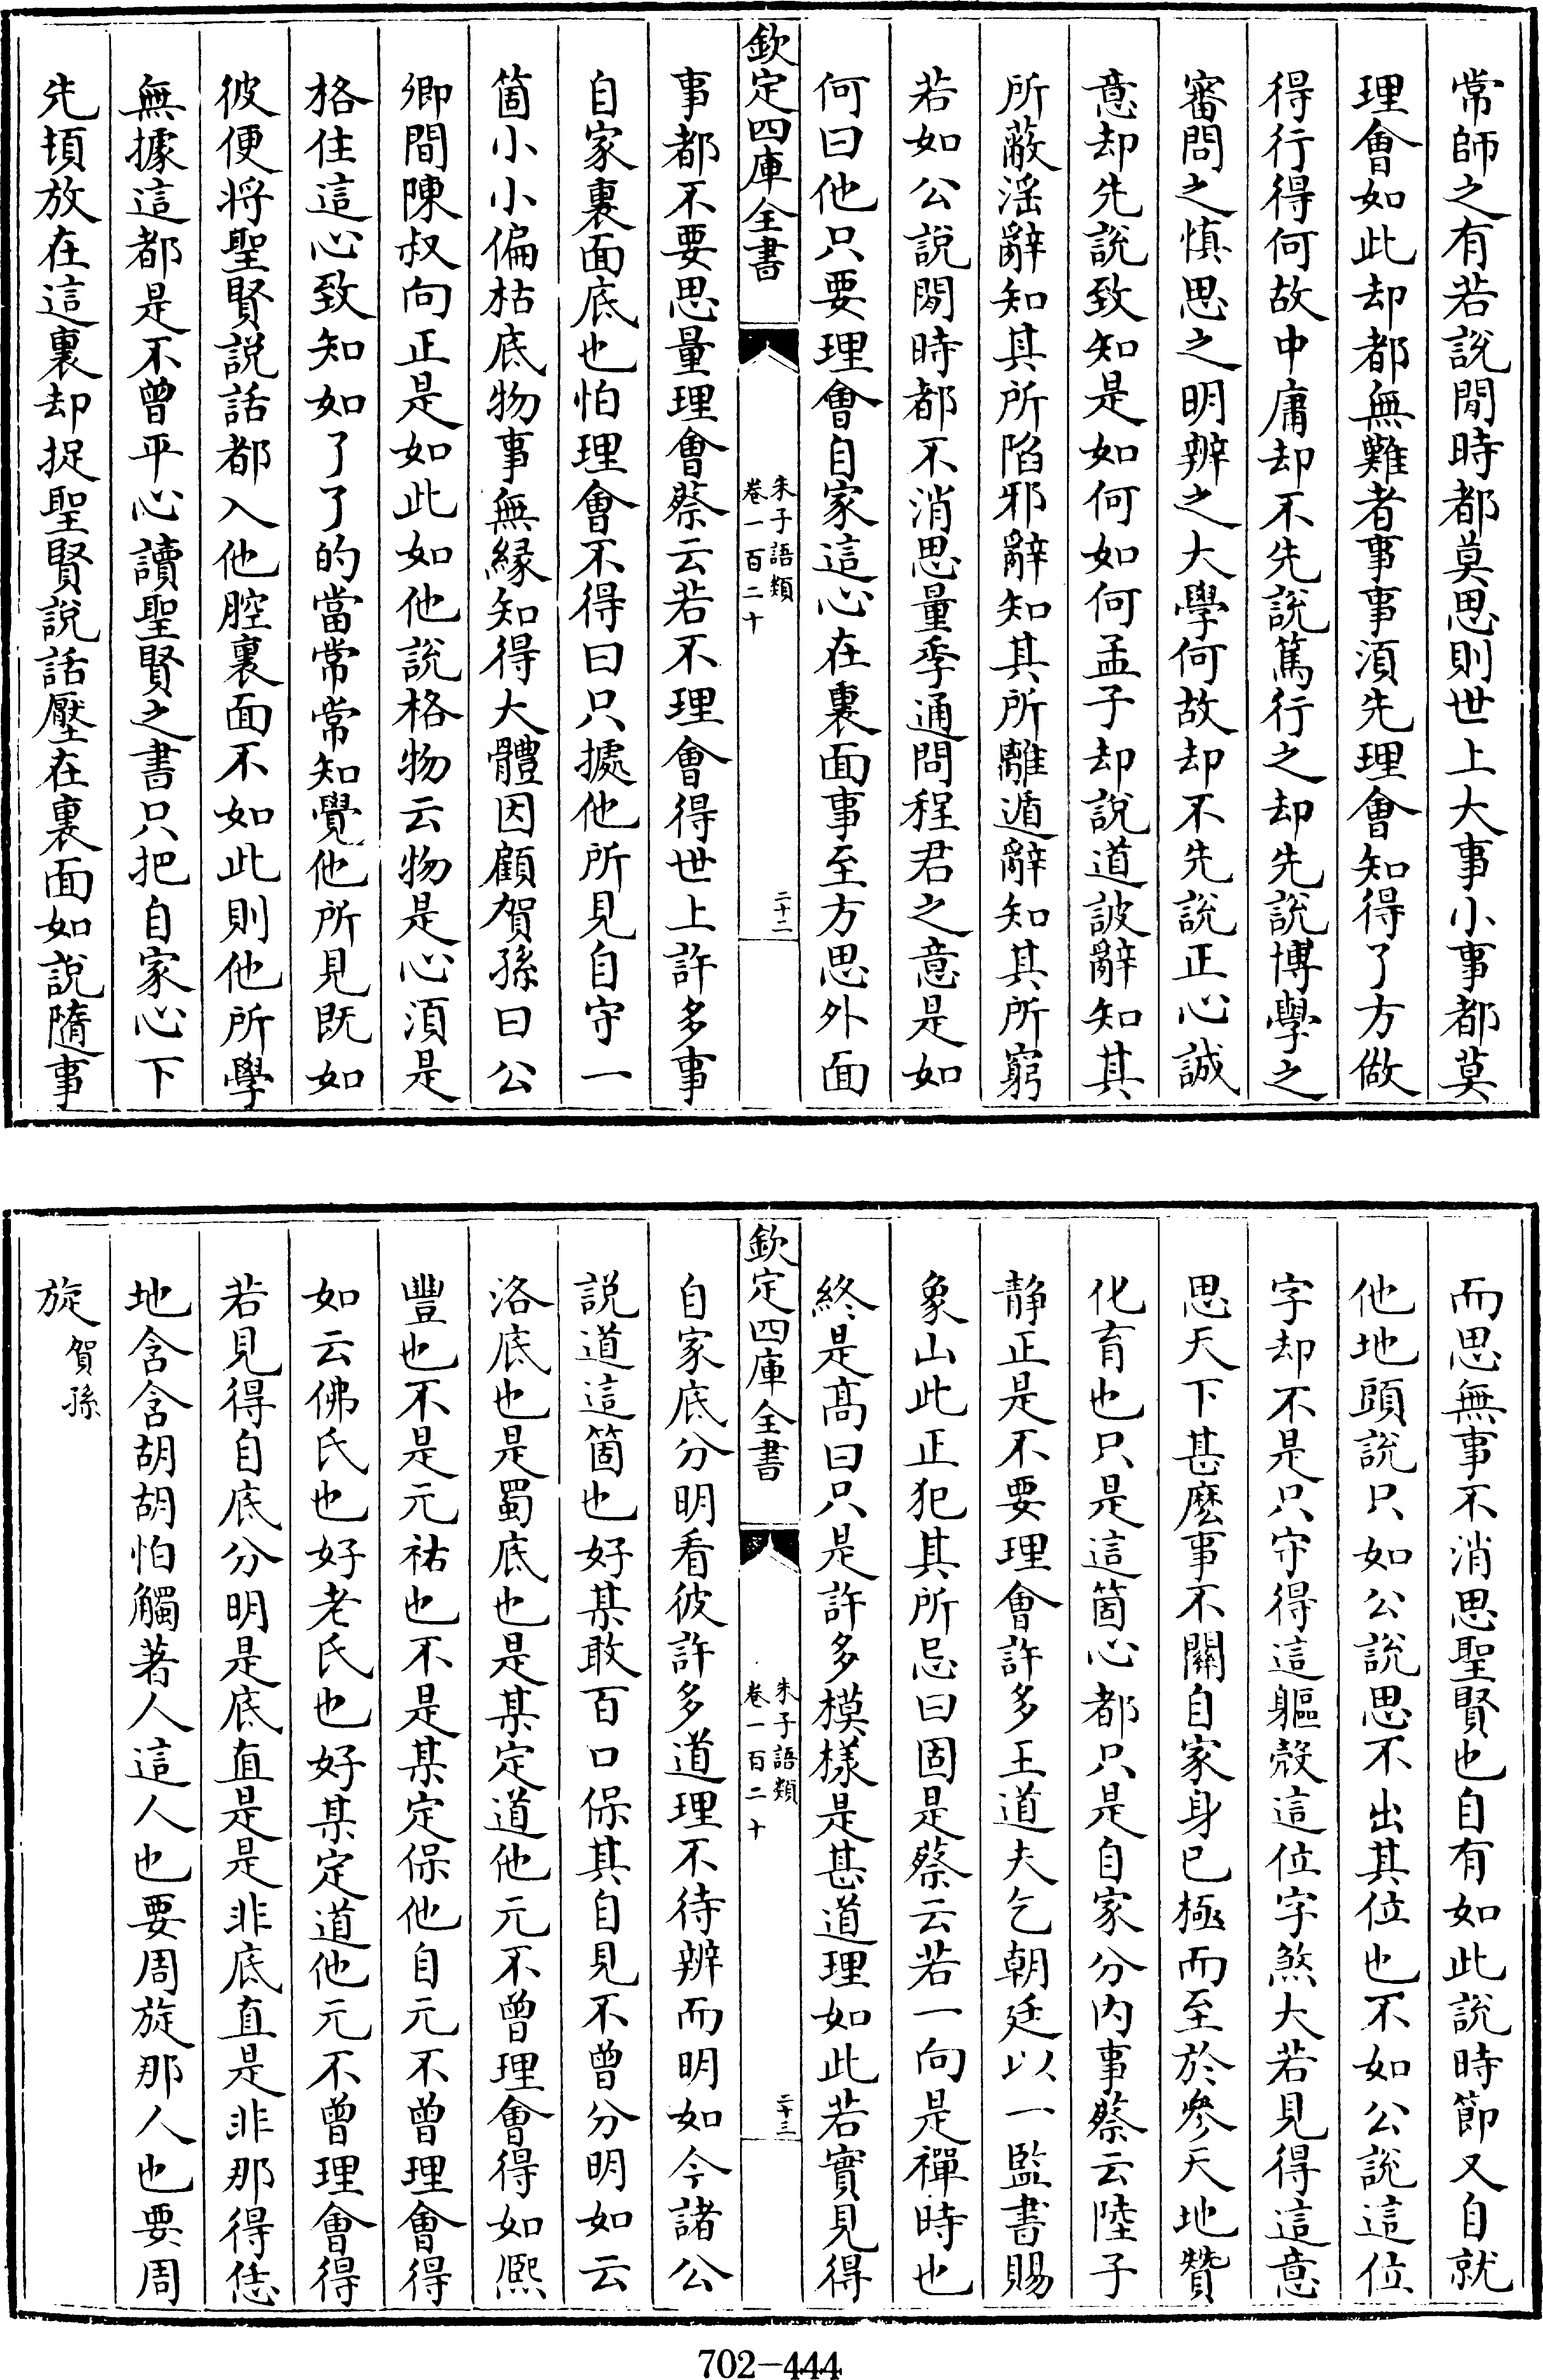 常師之有若說閒時都莫思則世上大事小事都莫
理會如此却都無難者事事湏先理會知得了方做
得行得何故中庸却不先說篤行之却先說博學之
審問之慎思之明辨之大學何故却不先說正心誠
意却先說致知是如何如何孟子却說道詖辭知其
所蔽滛辭知其所陷邪辭知其所離遁辭知其所窮
若如公說閒時都不消思量季通問程君之意是如
何曰他只要理會自家這心在裏面事至方思外面
欽定四庫全書
朱子語類
卷一百二十
二十二
事都不要思量理會蔡云若不理會得世上許多事
自家裏面底也怕理會不得曰只據他所見自守一
箇小小偏枯底物事無縁知得大體因顧賀孫曰公
鄉間陳叔向正是如此如他說格物云物是心湏是
格住這心致知如了了的當常常知覺他所見既如
彼便將聖賢說話都入他腔裏面不如此則他所學
無據這都是不曾平心讀聖賢之書只把自家心下
先頓放在這裏却捉聖賢說話壓在裏面如說隨事
而思無事不消思聖賢也自有如此說時節又自就
他地頭說只如公說思不出其位也不如公說這位
字却不是只守得這軀殼這位字煞大若見得這意
思天下甚麽事不關自家身已極而至於參天地贊
化育也只是這箇心都只是自家分内事蔡云陸子
静正是不要理會許多王道夫乞朝廷以一監書賜
象山此正犯其所忌曰固是蔡云若一向是禪時也
終是髙曰只是許多模樣是甚道理如此若實見得
欽定四庫全書
朱子語類
卷一百二十
二十三
自家底分明看彼許多道理不待辨而明如今諸公
說道這箇也好某敢百口保其自見不曾分明如云
洛底也是蜀底也是某定道他元不曾理會得如熈
豐也不是元祐也不是某定保他自元不曾理會得
如云佛氏也好老氏也好某定道他元不曾理會得
若見得自底分明是底直是是非底直是非那得恁
地含含胡胡怕觸著人這人也要周旋那人也要周
旋賀孫
702-444